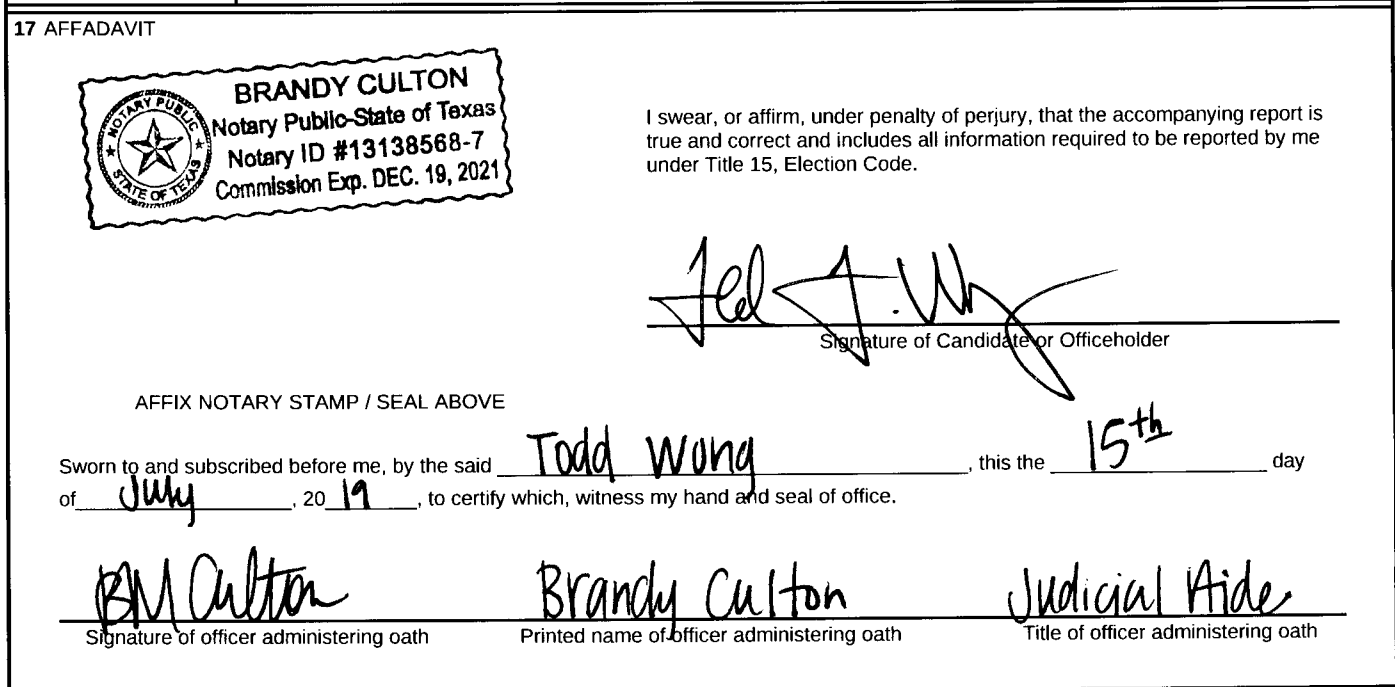 17 AFFADAVIT
BRANDY CULTON
Notary Public-State of Texas
Notary ID #13138568-7
Commission Exp. DEC. 19, 2021
NOTARY PUBLIC
STATE OF TEXAS
I swear, or affirm, under penalty of perjury, that the accompanying report is
true and correct and includes all information required to be reported by me
under Title 15, Election Code.
Signature of Candidate or Officeholder
AFFIX NOTARY STAMP / SEAL ABOVE
Sworn to and subscribed before me, by the said Todd Wong, this the 15th day
of July, 20 19, to certify which, witness my hand and seal of office.
BM Culton Brandy Culton Judicial Aide
Signature of officer administering oath Printed name of officer administering oath Title of officer administering oath